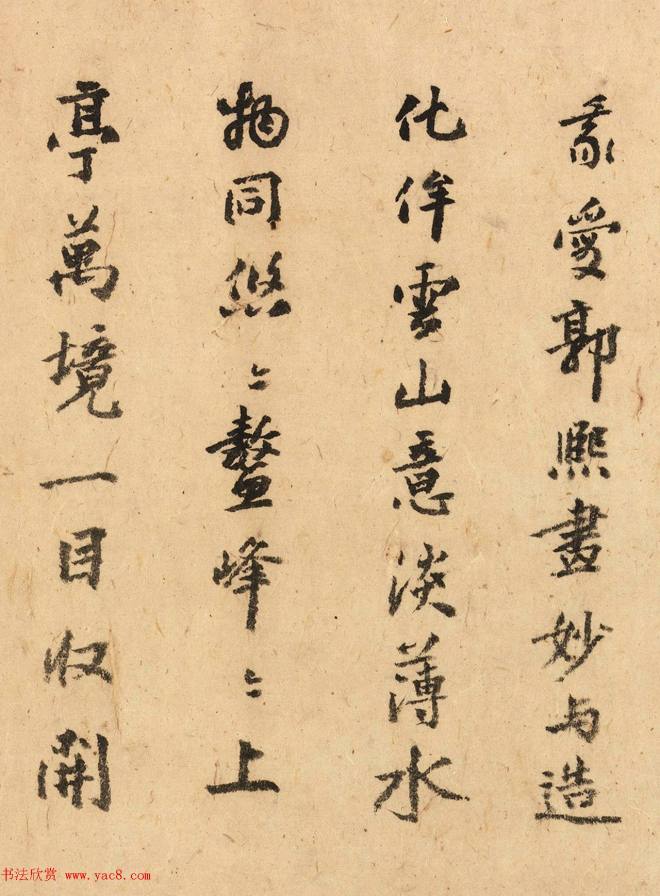 我愛郭熙畫妙与造
化侔雲山意淡薄水
物同悠〻鼇峰〻上
亭萬境一目收開
书法欣赏 www.yac8.com